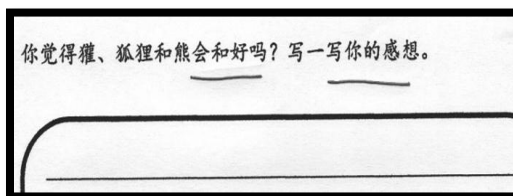 你觉得獾、狐狸和熊会和好吗？写一写你的感想。